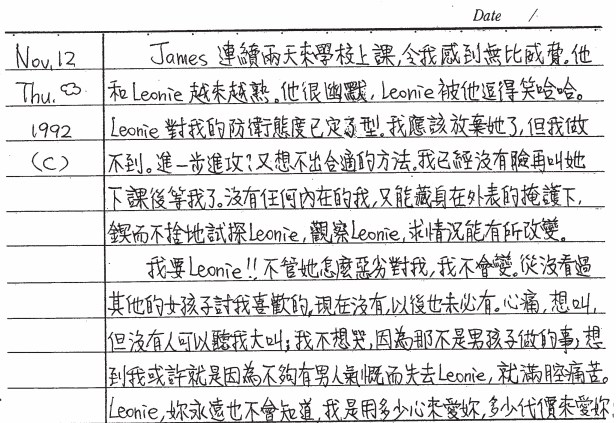 Date /
Nov. 12 James 連續兩天來學校上課,令我感到無比威脅。他
Thu. 和Leonie 越來越熟。他很幽默,Leonie被他逗得笑哈哈。
1992 Leonie 對我的防衛態度已定了型。我應該放棄她了,但我做
(C) 不到。進一步進攻?又想不出合適的方法。我已經沒有臉再叫她
下課後等我了。沒有任何內在的我,又能藏身在外表的掩護下,
鍥而不捨地試探Leonie,觀察Leonie,求情況能有所改變。
我要Leonie!!不管她怎麼惡劣對我,我不會變。從沒看過
其他的女孩子討我喜歡的。現在沒有,以後也未必有。心痛,想叫,
但沒有人可以聽我大叫;我不想哭,因為那不是男孩子做的事;想
到我或許就是因為不夠有男人氣慨而失去Leonie,就滿腔痛苦。
Leonie,妳永遠也不會知道,我是用多少心來愛妳,多少代價來愛妳.